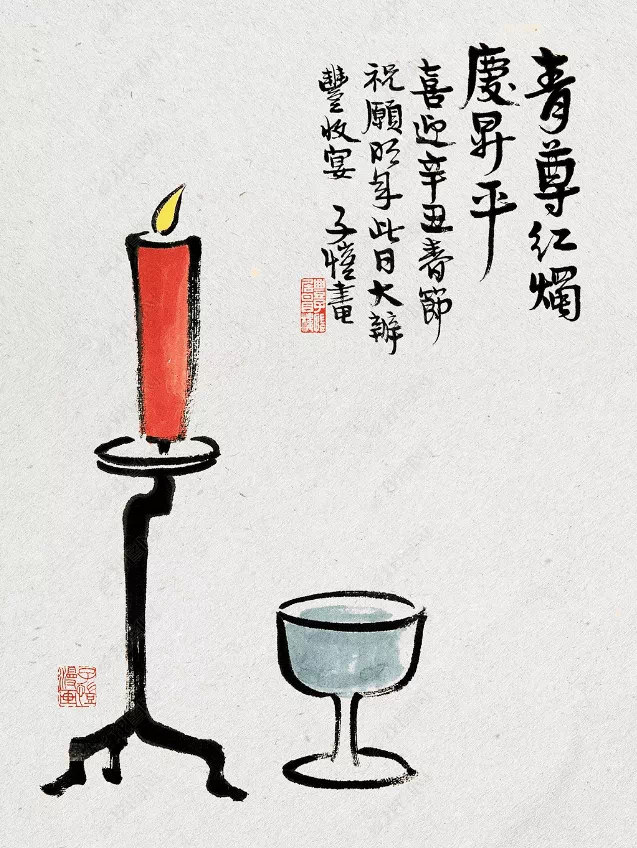 青尊红燭
慶昇平
喜迎辛丑春節
祝願明年此日大辦
豐收宴
子愷畫
子愷
漫画